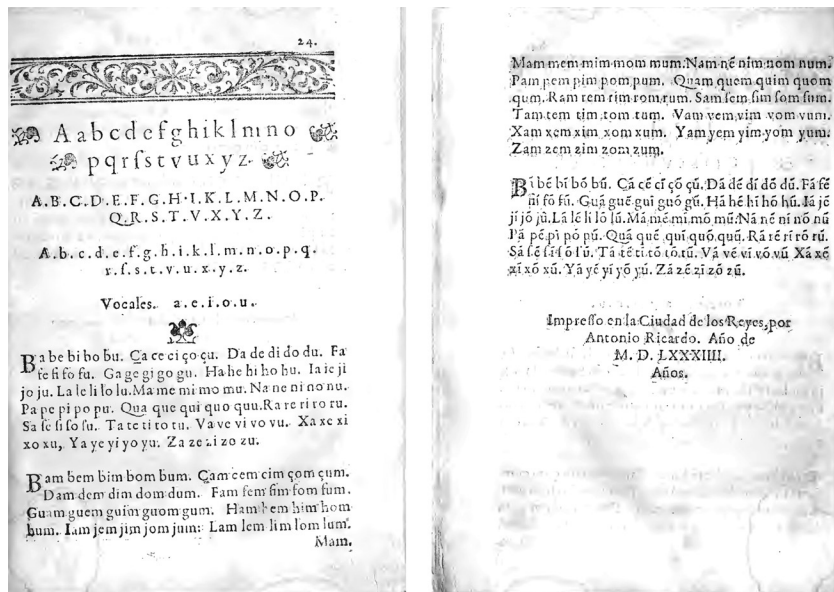 24.
A a b c d e f g h i k l m n o
p q r ſ s t v u x y z.
A.B.C.D.E.F.G.H.I.K.L.M.N.O.P.
Q.R.S.T.V.X.Y.Z.
A.b.c.d.e.f.g.h.i.k.l.m.n.o.p.q.
r.ſ.s.t.v.u.x.y.z.
Vocales. a.e.i.o.u.
Ba be bi bo bu. Ca ce ci ço çu. Da de di do du. Fa
fe fi fo fu. Ga ge gi go gu. Ha he hi ho hu. Ia ie ji
jo ju. La le li lo lu. Ma me mi mo mu. Na ne ni no nu.
Pa pe pi po pu. Qua que qui quo quu. Ra re ri ro ru.
Sa ſe ſi ſo ſu. Ta te ti to tu. Va ve vi vo vu. Xa xe xi
xo xu, Ya ye yi yo yu. Za ze zi zo zu.
Bam bem bim bom bum. Cam cem cim çom çum.
Dam dem dim dom dum. Fam fem fim fom fum.
Guam guem guim guom gum. Ham hem him hom
hum. Iam jem jim jom jum: Lam lem lim lom lum.
Mam.
Mam mem mim mom mum. Nam nē nim nom num.
Pam pem pim pom pum. Quam quem quim quom
qum. Ram rem rim rom rum. Sam ſem ſim ſom ſum.
Tam tem tim tom tum. Vam vem vim vom vum.
Xam xem xim xom xum. Yam yem yim yom yum.
Zam zem zim zom zum.
Bā bē bī bō bū. Cā cē cī çō çū. Dā dē dī dō dū. Fā fē
fī fō fū. Guā guē guī guō gū. Hā hē hī hō hū. Iā jē
jī jō jū. Lā lē lī lō lū. Mā mē mī mō mū. Nā nē nī nō nū
Pā pē pī pō pū. Quā quē quī quō quū. Rā rē rī rō rū.
Sā ſē ſī ſō ſū. Tā tē tī tō tū. Vā vē vī vō vū Xā xē
xī xō xū. Yā yē yī yō yū. Zā zē zī zō zū.
Impreſſo en la Ciudad de los Reyes, por
Antonio Ricardo. Año de
M. D. LXXXIIII.
Años.